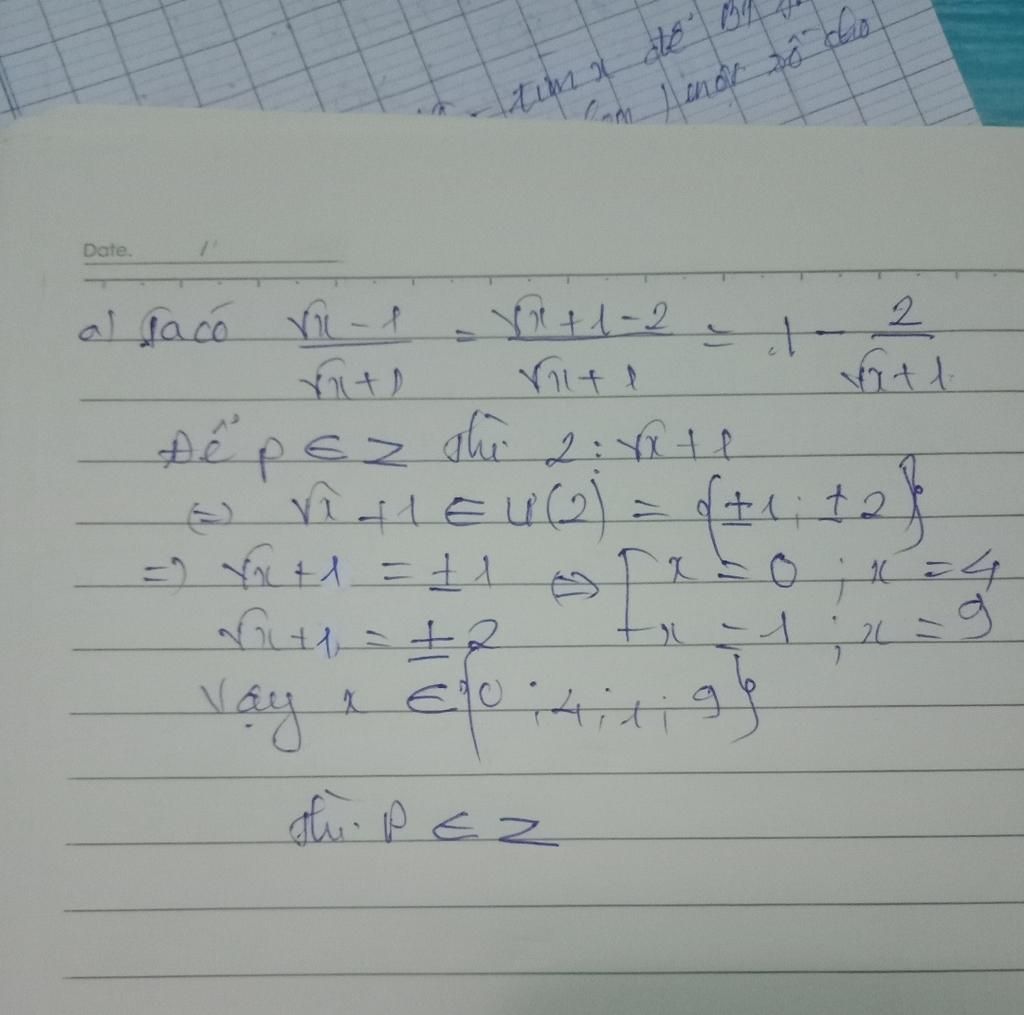 tìm x để
một số cho
Date. 1
a) Ta có √x-1/√x+1 = √x+1-2/√x+1 = 1 - 2/√x+1
Để P ∈ Z thì 2⋮√x+1
⇔ √x+1 ∈ Ư(2) = {±1; ±2}
=> √x+1 = ±1 ⇔ [x = 0; x = 4
√x+1 = ±2 x = 1; x = 9
Vậy x ∈ {0; 4; 1; 9}
thì P ∈ Z